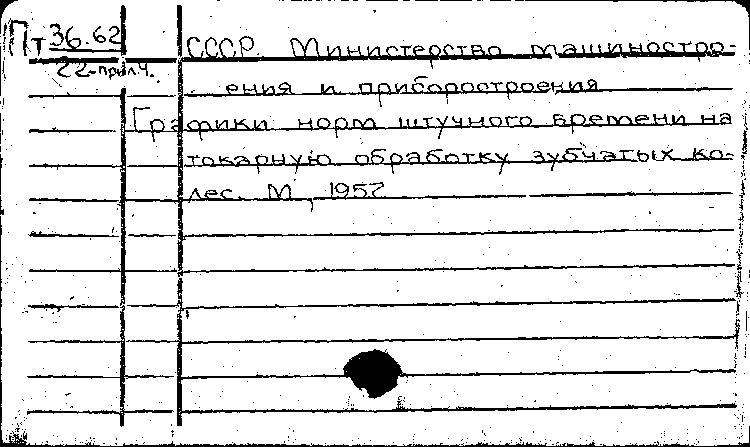 Пт 36.62
22-прил.4.
СССР. Министерство машиностро-
ения и приборостроения
Графики норм штучного времени на
токарную обработку зубчатых ко-
лес. М., 1957